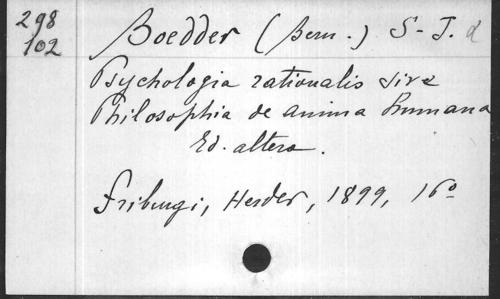 298
102
Boedder (Bern.) S-J.
Psychologia rationalis sive
Philosophia de anima humana
Ed. altera.
Friburgi, Herder, 1899, 16º